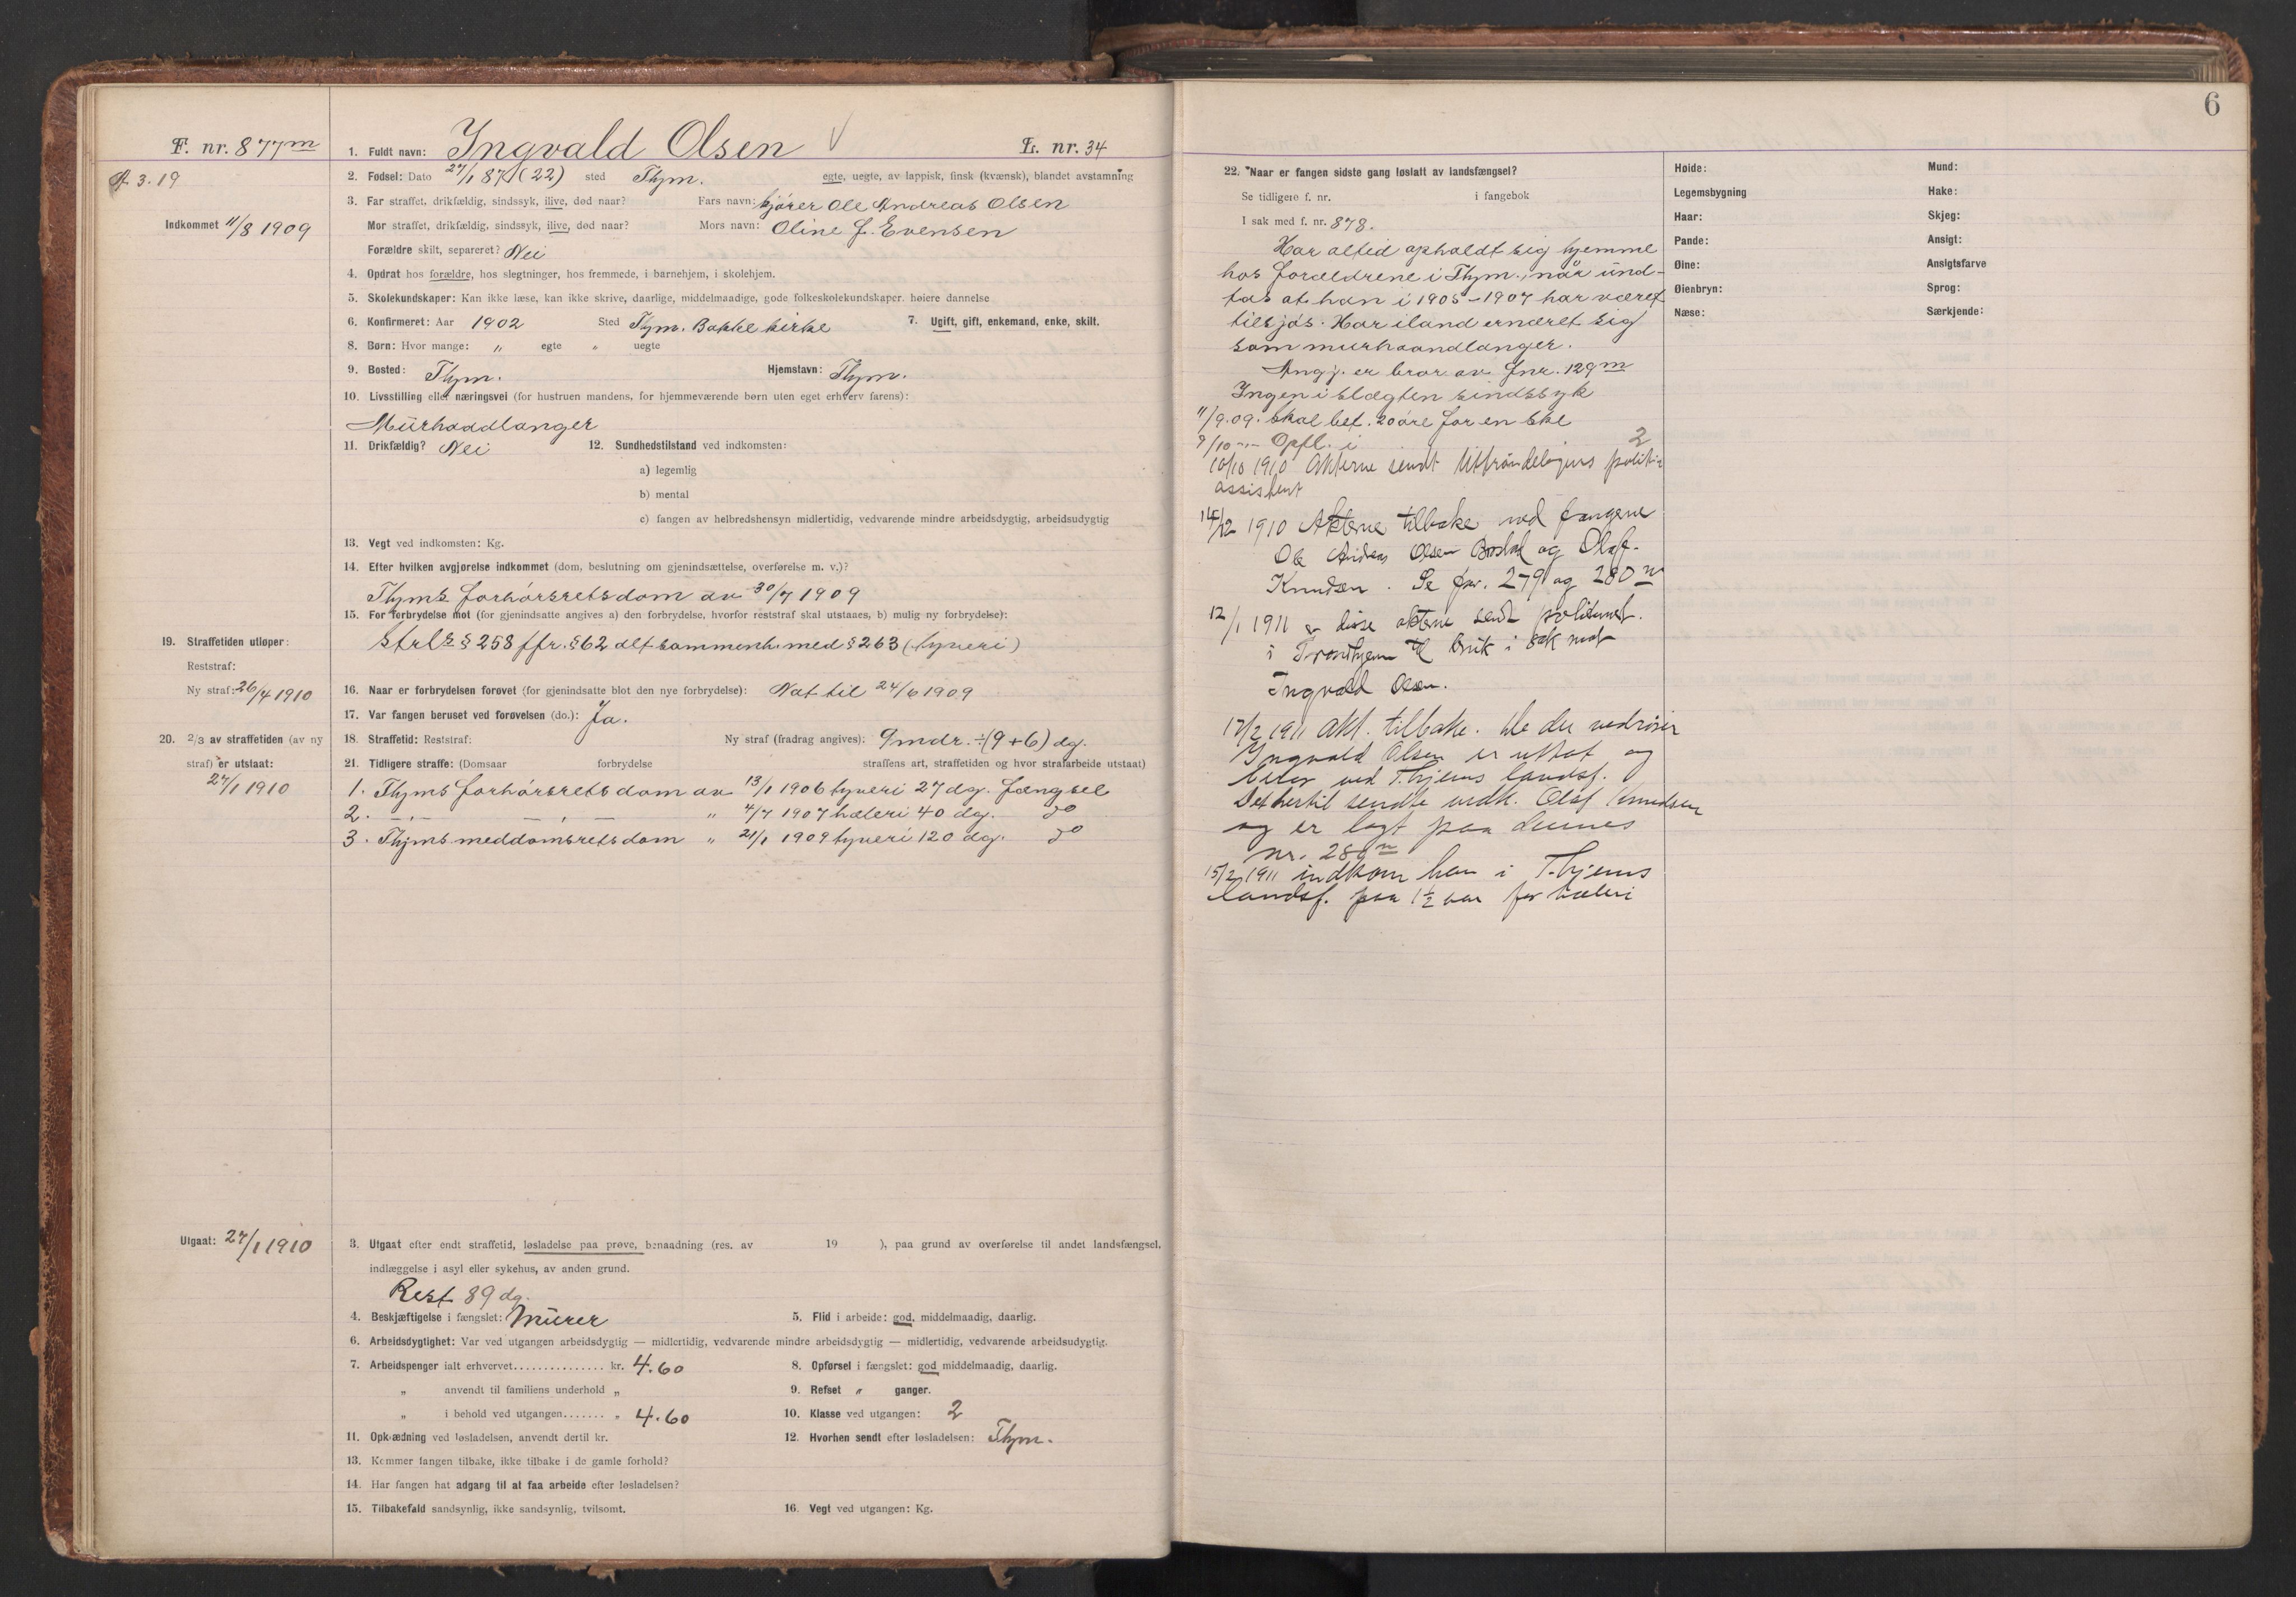 F. nr. 877m
1. Fuldt navn: Ingvald Olsen V
L. nr. 34
A 3.19
2. Fødsel: Dato 27/1 87 (22) sted Thjm. egte, uegte, av lappisk, finsk (kvænsk), blandet avstamning
3. Far straffet, drikfældig, sindssyk, ilive, død naar? Fars navn: kjører Ole Andreas Olsen
Indkommet 11/8 1909
Mor straffet, drikfældig, sindssyk, ilive, død naar? Mors navn: Oline J. Evensen
Forældre skilt, separeret? Nei
4. Opdrat hos forældre, hos slegtninger, hos fremmede, i barnehjem, i skolehjem.
5. Skolekundskaper: Kan ikke læse, kan ikke skrive, daarlige, middelmaadige, gode folkeskolekundskaper. høiere dannelse
6. Konfirmeret: Aar 1902 Sted Thjm. Bakke kirke 7. Ugift, gift, enkemand, enke, skilt.
8. Børn: Hvor mange: " egte " uegte
9. Bosted: Thjm. Hjemstavn: Thjm.
10. Livsstilling eller næringsvei (for hustruen mandens, for hjemmeværende børn uten eget erhverv farens):
Murhaadlanger
11. Drikfældig? Nei 12. Sundhedstilstand ved indkomsten:
a) legemlig
b) mental
c) fangen av helbredshensyn midlertidig, vedvarende mindre arbeidsdygtig, arbeidsudygtig
13. Vegt ved indkomsten: Kg.
14. Efter hvilken avgjørelse indkommet (dom, beslutning om gjenindsættelse, overførelse m. v.)?
Thjms forhørsretsdom av 30/7 1909
15. For forbrydelse mot (for gjenindsatte angives a) den forbrydelse, hvorfor reststraf skal utstaaes, b) mulig ny forbrydelse):
19. Straffetiden utløper:
Strl §§ 258 jfr. § 62 alt sammenh. med § 263 (tyveri)
Reststraf:
Ny straf: 26/4 1910
16. Naar er forbrydelsen forøvet (for gjenindsatte blot den nye forbrydelse): Nat til 24/6 1909
17. Var fangen beruset ved forøvelsen (do.): Ja.
20. 2/3 av straffetiden (av ny
straf) er utstaat:
27/1 1910
18. Straffetid: Reststraf: Ny straf (fradrag angives): 9 mdr. ÷ (9+6) dg.
21. Tidligere straffe: (Domsaar forbrydelse straffens art, straffetiden og hvor strafarbeide utstaat)
1. Thjms forhørsretsdom av 13/1 1906 tyveri 27 dg. Fængsel
2. — " — — " — " 4/7 1907 hæleri 40 dg. do
3. Thjms meddomsretsdom " 21/1 1909 tyveri 120 dg. do
Utgaat: 27/1 1910
3. Utgaat efter endt straffetid, løsladelse paa prøve, benaadning (res. av 19 ), paa grund av overførelse til andet landsfængsel,
indlæggelse i asyl eller sykehus, av anden grund.
Rest 89 dg.
4. Beskjæftigelse i fængslet: Murer 5. Flid i arbeide: god, middelmaadig, daarlig.
6. Arbeidsdygtighet: Var ved utgangen arbeidsdygtig — midlertidig, vedvarende mindre arbeidsdygtig — midlertidig, vedvarende arbeidsudygtig.
7. Arbeidspenger ialt erhvervet............... kr. 4.60 8. Opførsel i fængslet: god middelmaadig, daarlig.
" anvendt til familiens underhold " 9. Refset " ganger.
" i behold ved utgangen....... " 4.60 10. Klasse ved utgangen: 2
11. Opklædning ved løsladelsen, anvendt dertil kr. 12. Hvorhen sendt efter løsladelsen: Thjm.
13. Kommer fangen tilbake, ikke tilbake i de gamle forhold?
14. Har fangen hat adgang til at faa arbeide efter løsladelsen?
15. Tilbakefald sandsynlig, ikke sandsynlig, tvilsomt. 16. Vegt ved utgangen: Kg.
6
22. Naar er fangen sidste gang løslatt av landsfængsel?
Se tidligere f. nr. i fangebok
I sak med f. nr. 878.
Har altid opholdt sig hjemme
hos forældrene i Thjm., når und-
tas at han i 1905–1907 har været
tilsjøs. Har iland ernæret sig
som murhaandlanger.
Angj. er bror av fnr. 129m
Ingen i slægten sindssyk
11/9.09. skal bet. 20 øre for en ske
9/10 —"— Opfl. i 2
10/10 1910 Akterne sendt Uttrøndelagens politi-
assistent
14/12 1910 Akterne tilbake ved fangene
Ole Andreas Olsen og Olaf
Knudsen. Se fnr. 279 og 280 n
12/1 1911 er disse akterne sendt politimest.
i Trondhjem til bruk i sak mot
Ingvald Olsen.
17/2 1911 Akt. tilbake. De der vedrører
Ingvald Olsen er uttat og
ved T.hjems landsf.
Det hertil sendte vedk. Olaf Knudsen
og er lagt paa dennes
nr. 280 n
15/2 1911 indkom han i T.hjems
landsf. paa 1½ aar for hæleri
Høide: Mund:
Legemsbygning Hake:
Haar: Skjeg:
Pande: Ansigt:
Øine: Ansigtsfarve
Øienbryn: Sprog:
Næse: Særkjende: